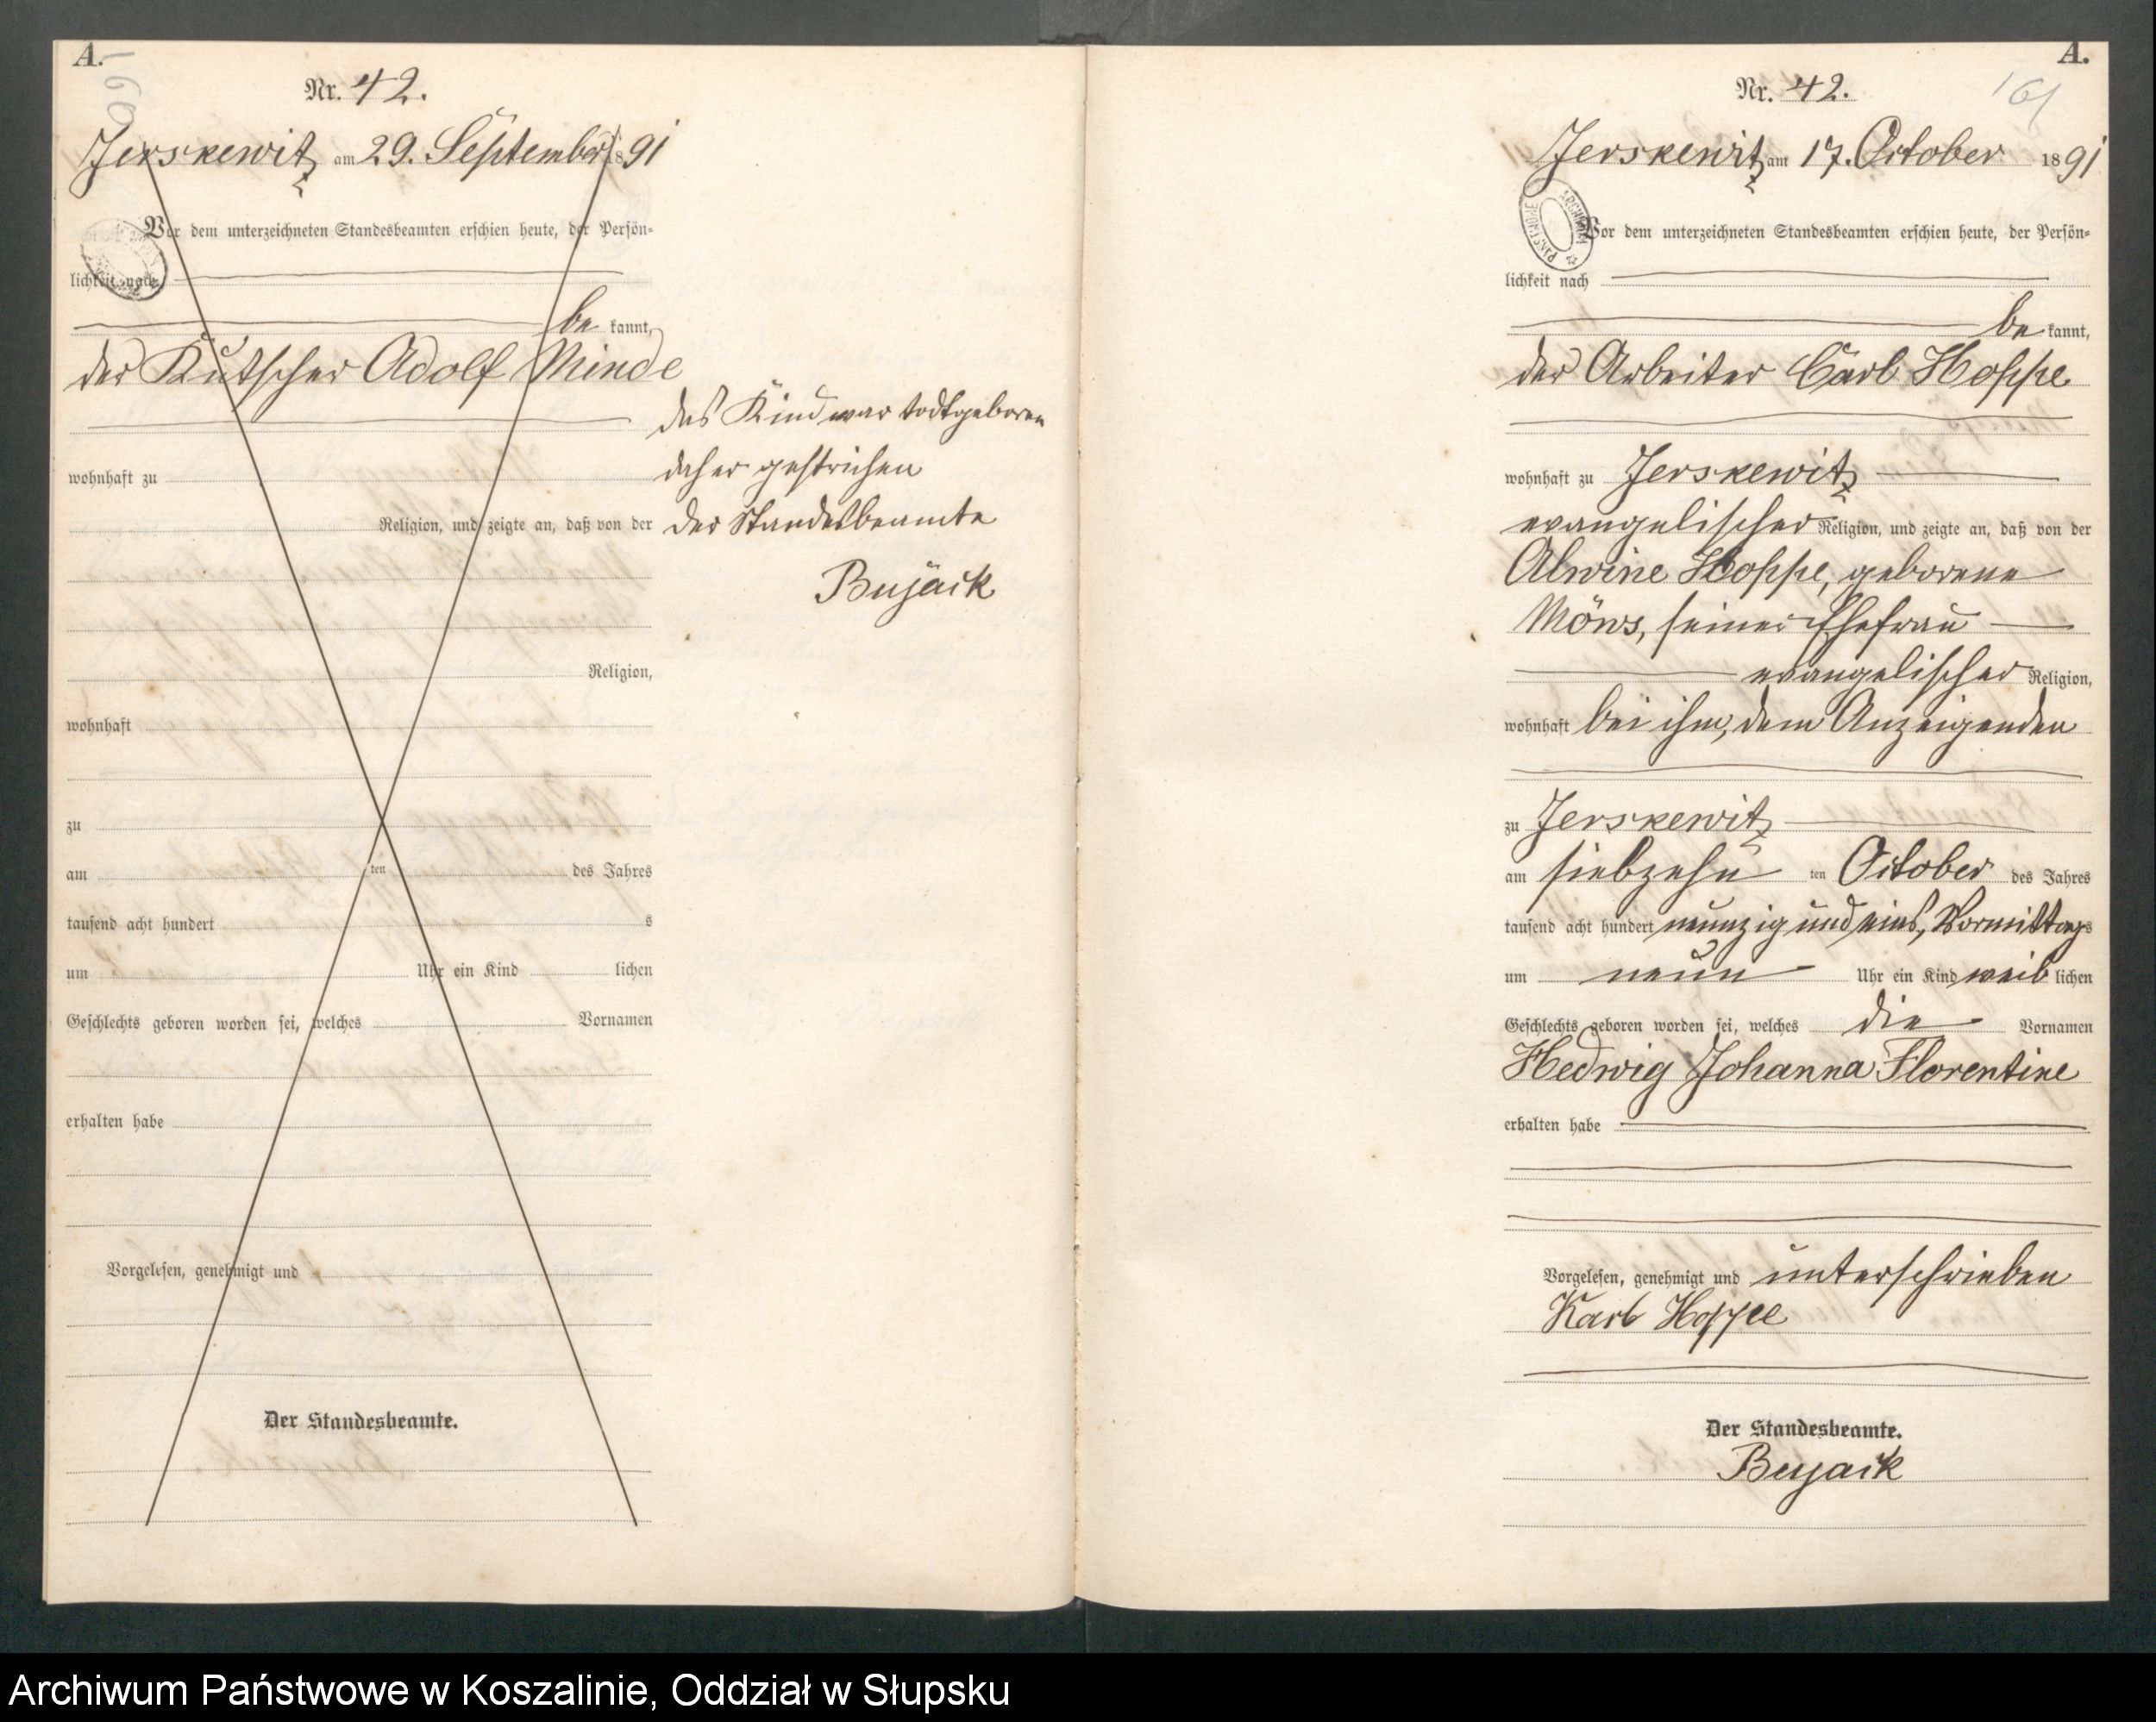 A.
160
Nr. 42.
Jerskewitz am 29. September 1891
Vor dem unterzeichneten Standesbeamten erschien heute, der Persön-
lichkeit nach
be kannt,
der Kutscher Adolf Minde
wohnhaft zu
Religion, und zeigte an, daß von der
Religion,
wohnhaft
zu
am ten des Jahres
tausend acht hundert s
um Uhr ein Kind lichen
Geschlechts geboren worden sei, welches Vornamen
erhalten habe
Vorgelesen, genehmigt und
Der Standesbeamte.
das Kind war todtgeboren
daher gestrichen
Der Standesbeamte
Bujack
A.
161
Nr. 42.
Jerskewitz am 17. October 1891
Vor dem unterzeichneten Standesbeamten erschien heute, der Persön-
lichkeit nach
be kannt,
der Arbeiter Carl Hoppe
wohnhaft zu Jerskewitz
evangelischer Religion, und zeigte an, daß von der
Alwine Hoppe, geborene
Möws, seiner Ehefrau
evangelischer Religion,
wohnhaft bei ihm, dem Anzeigenden
zu Jerskewitz
am siebzehn ten October des Jahres
tausend acht hundert neunzig und eins, Vormittags
um neun Uhr ein Kind weib lichen
Geschlechts geboren worden sei, welches die Vornamen
Hedwig Johanna Florentine
erhalten habe
Vorgelesen, genehmigt und unterschrieben
Karl Hoppe
Der Standesbeamte.
Bujack
Archiwum Państwowe w Koszalinie, Oddział w Słupsku